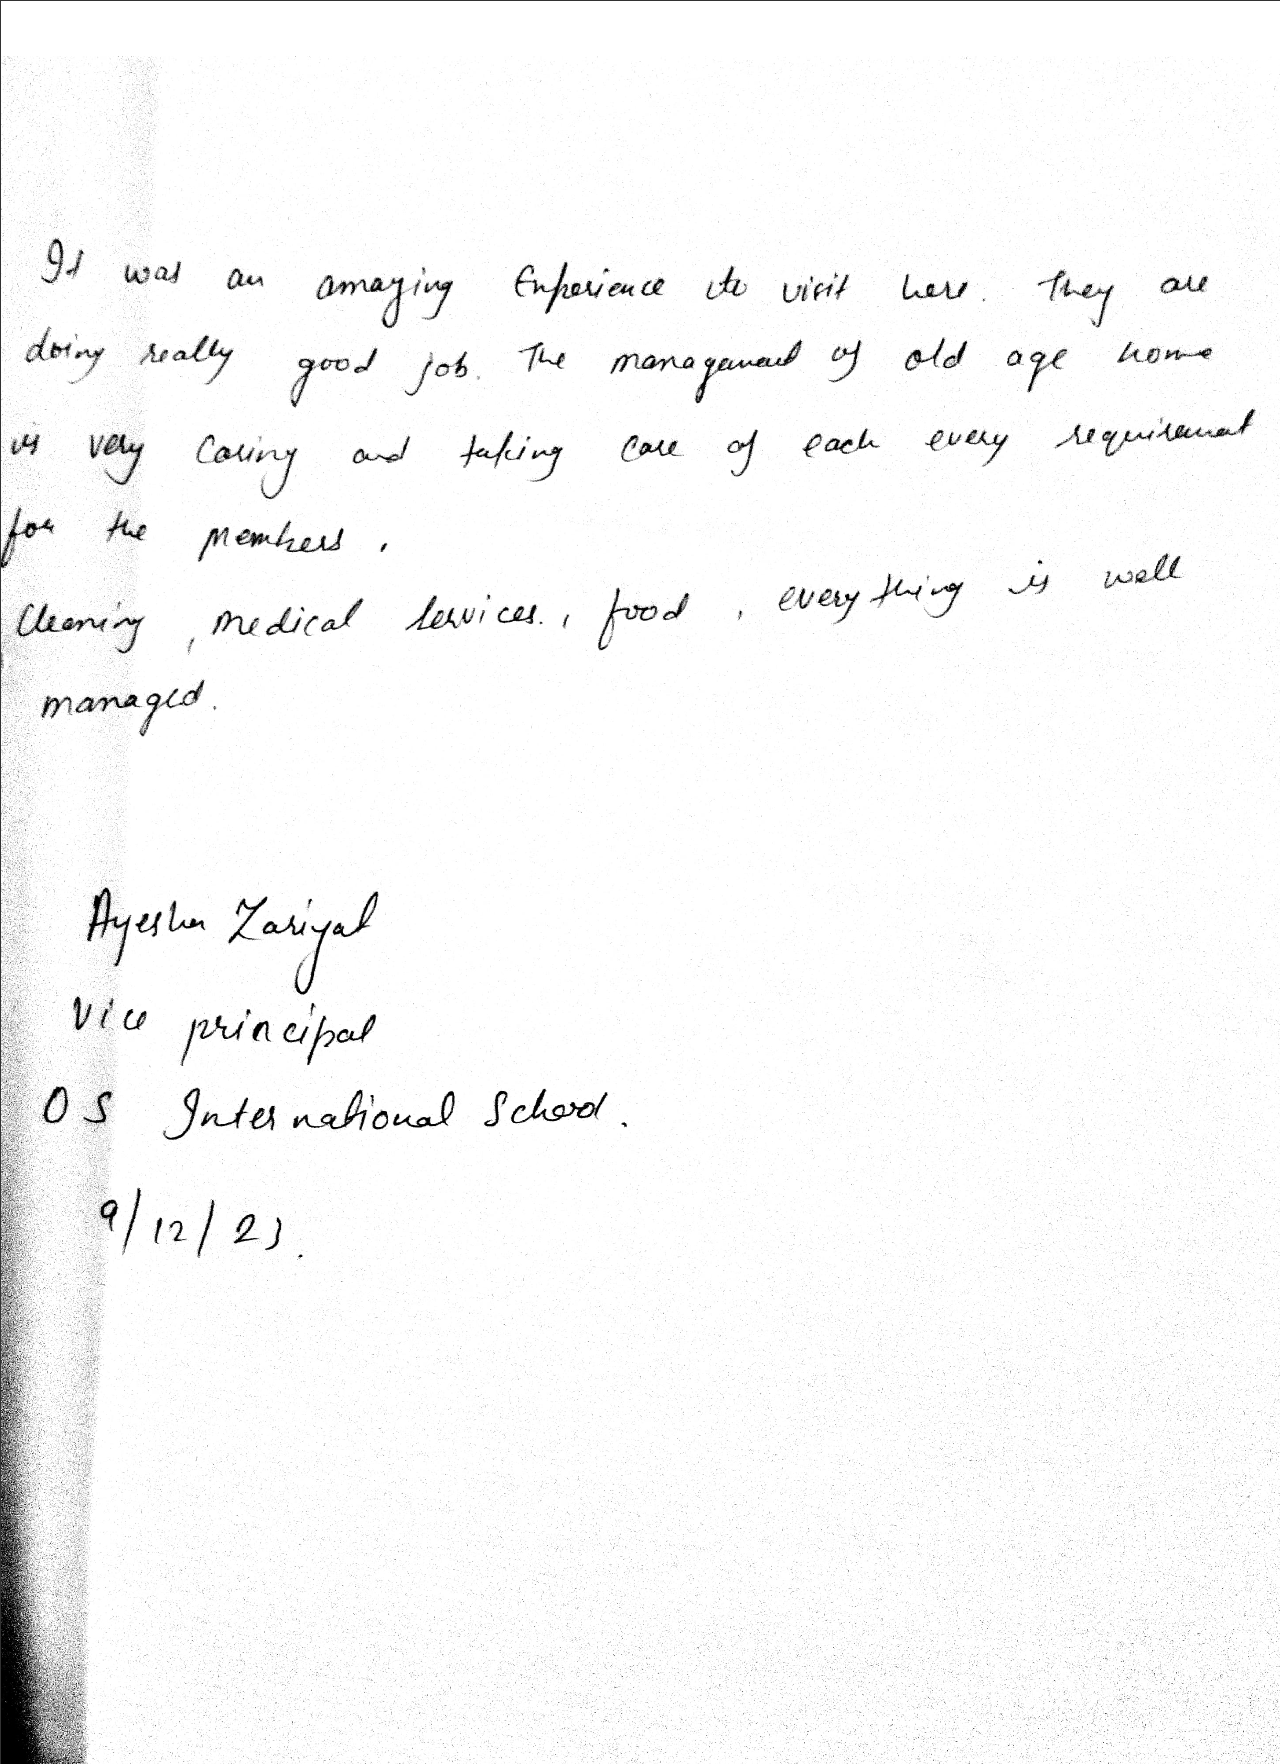 It was an amazing Experience to visit here. They are
doing really good job. The management of old age home
is very caring and taking care of each every requirement
for the members.
Cleaning, medical services., food, everything is well
managed.
Ayesha Zariyal
Vice principal
OS International School.
9/12/23.